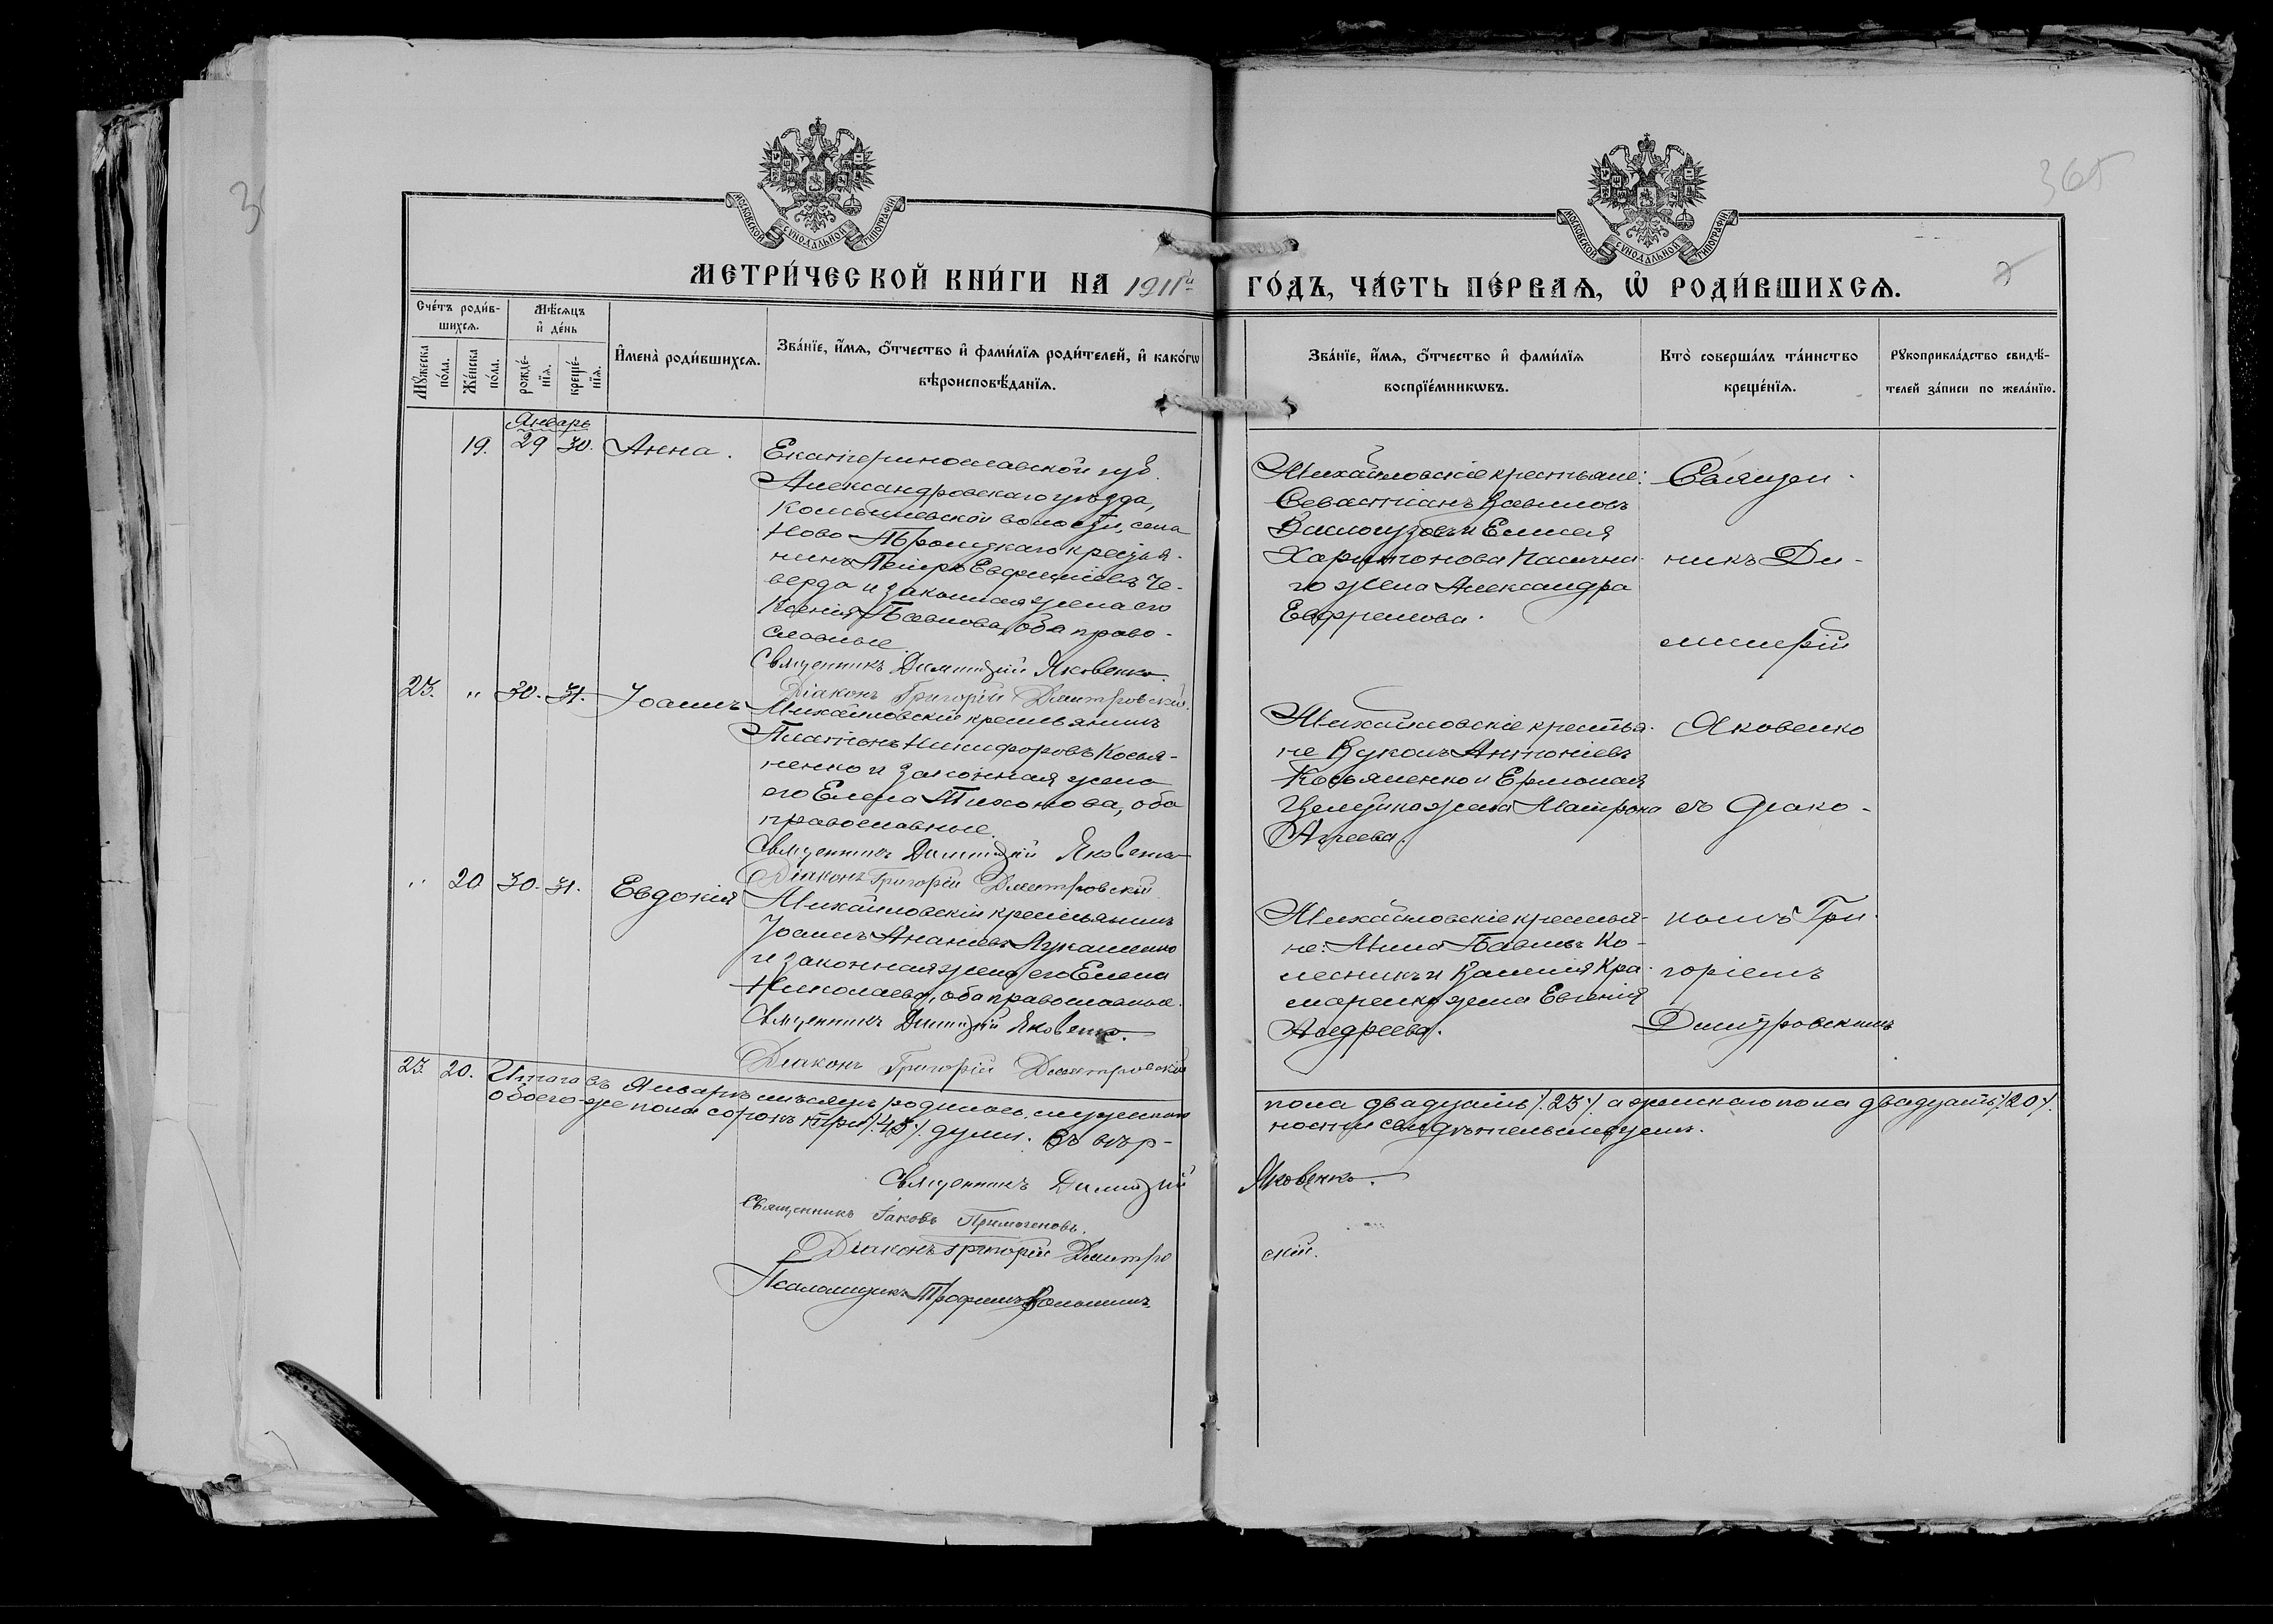 365
МОСКОВСКОЙ СѴНОДАЛЬНОЙ ТИПОГРАФІИ
МОСКОВСКОЙ СѴНОДАЛЬНОЙ ТИПОГРАФІИ
МЕТРИ́ЧЕСКОЙ КНИ́ГИ НА 1911й ГО́ДЪ, ЧА́СТЬ ПЕ́РВАѦ, Ѡ҆ РОДИ́ВШИХСѦ.
Сче́тъ роди́в-
шихсѧ.
Мꙋ́жеска по́ла.
Же́нска по́ла.
Мѣ́сѧцъ
и҆ де́нь
рожде́-нїѧ.
креще́-нїѧ.
И҆мена̀ роди́вшихсѧ.
Зва́нїе, и҆́мѧ, ѻ҆́тчество и҆ фами́лїѧ роди́телей, и҆ како́гѡ
вѣроисповѣ́данїѧ.
Зва́нїе, и҆́мѧ, ѻ҆́тчество и҆ фами́лїѧ
воспрїе́мникѡвъ.
Кто̀ соверша́лъ та́инство
креще́нїѧ.
Рꙋкоприкла́дство свидѣ́-
телей за́писи по жела́нїю.
Январь
19. 29 30. Анна.
Екатеринославской губ.
Александровскаго уѣзда,
волости, села
Ново-Троицкаго крестья-
нинъ Петръ Евфиміевъ Че-
верда и законная жена его
Ксенія Павлова, оба право-
славные.
Священникъ Димитрій Яковенко.
Діаконъ Григорій Дмитровскій.
Михайловскіе крестьяне:
Севастіанъ Вавиловъ
Бѣлоусовъ и Елисея
Харитонова Пасѣчна-
го жена Александра
Ефремова.
23. " 30. 31. Іоаннъ
Михайловскій крестьянинъ
Платонъ Никифоровъ Косья-
ненко и законная жена
его Елена Тихонова, оба
православные.
Священникъ Димитрій Яковенко
Діаконъ Григорій Дмитровскій
Михайловскіе крестья-
не Вуколъ Антоніевъ
Косьяненко и Ермолая
жена Матрона
Агеева.
" 20 30. 31. Евдокія
Михайловскій крестьянинъ
Іоаннъ Ананіевъ Лукашенко
и законная жена его Елена
Николаева, оба православные.
Священникъ Димитрій Яковенко.
Діаконъ Григорій Дмитровскій
Михайловскіе крестья-
не: Павловъ Ко-
лесникъ и Кра-
маренко жена Евгенія
Андреева.
Священ-
никъ Ди-
митрій
Яковенко
съ діако-
номъ Гри-
горіемъ
Дмитровскимъ
23. 20. Итого въ Январѣ мѣсяцѣ родилось мужескаго пола двадцать /.23/. а женскаго пола двадцать /.20/.
обоего-же пола сорокъ три /.43/. души. Въ вѣр-ности свидѣтельствуемъ.
Священникъ Димитрій Яковенко.
Священникъ Іаковъ Примогеновъ.
Діаконъ Григорій Дмитровскій.
Псаломщикъ Трофимъ Волошинъ